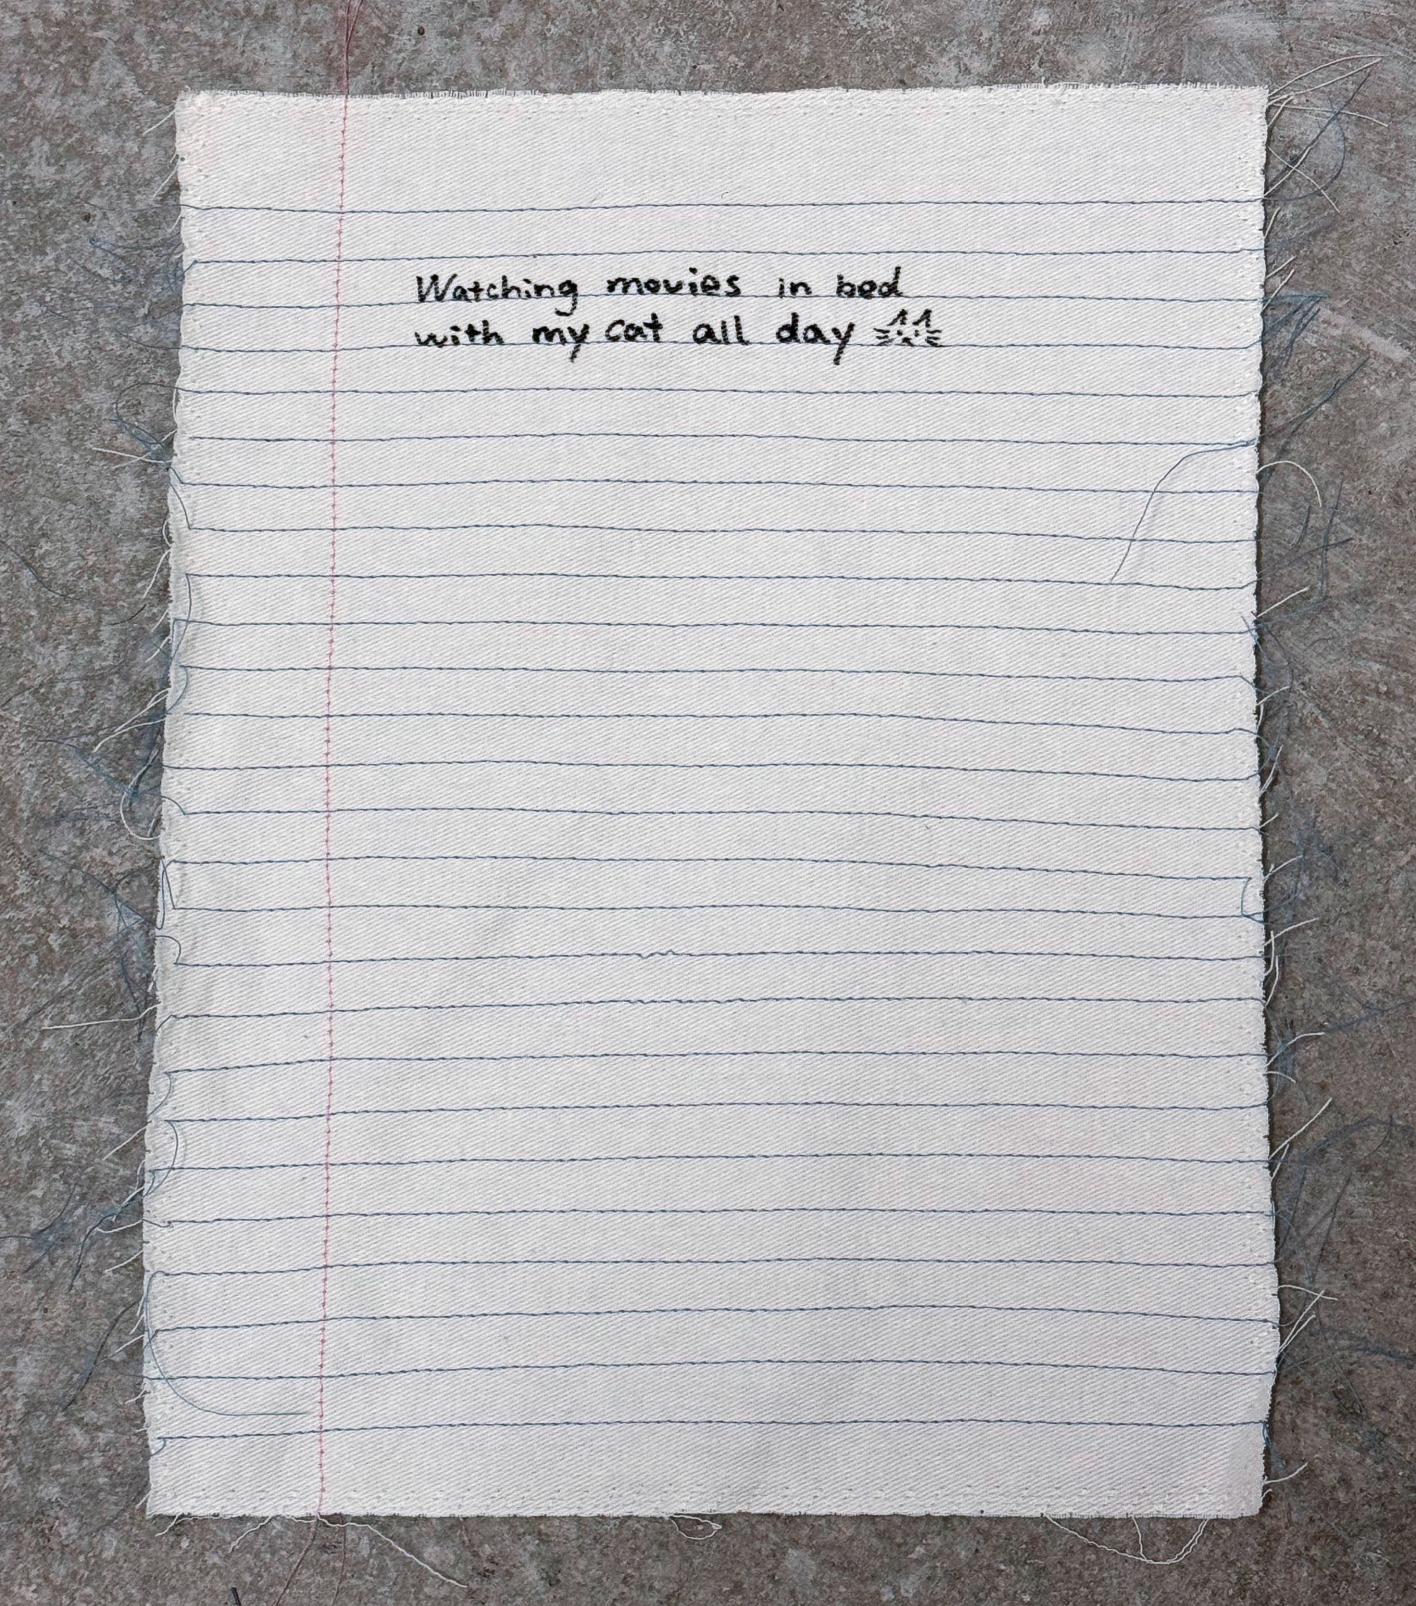 Watching movies in bed
with my cat all day